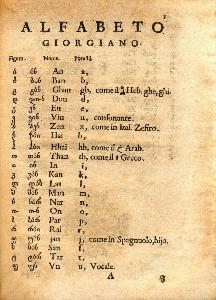 ALFABETO
GIORGIANO.
Figura. Nome. Potestà.
ა ან An a,
ბ ბან Ban b,
გ გან Ghan gh, come il Heb. ghe, ghi.
დ დონ Don d,
ე ენ En e,
ვ ვინ Vin u, consonante.
ზ ზენ Zen z, come in Ital. Zefiro.
ჱ Hei h,
Hhei hh, come il Arab.
თ თან Than th, come il Greco.
ი ინ In i,
კ კან Kan k,
ლ ლას Las l,
მ მან Man m,
ნ ნარ Nar n,
ო ონ On o,
პ პარ Par p,
რ რაი Rai r,
ჟ ჟან jan j, come in Spagnuolo, hijo.
ს სან San s,
ტ ტარ Tar t,
უ უნ Vn u, Vocale.
A